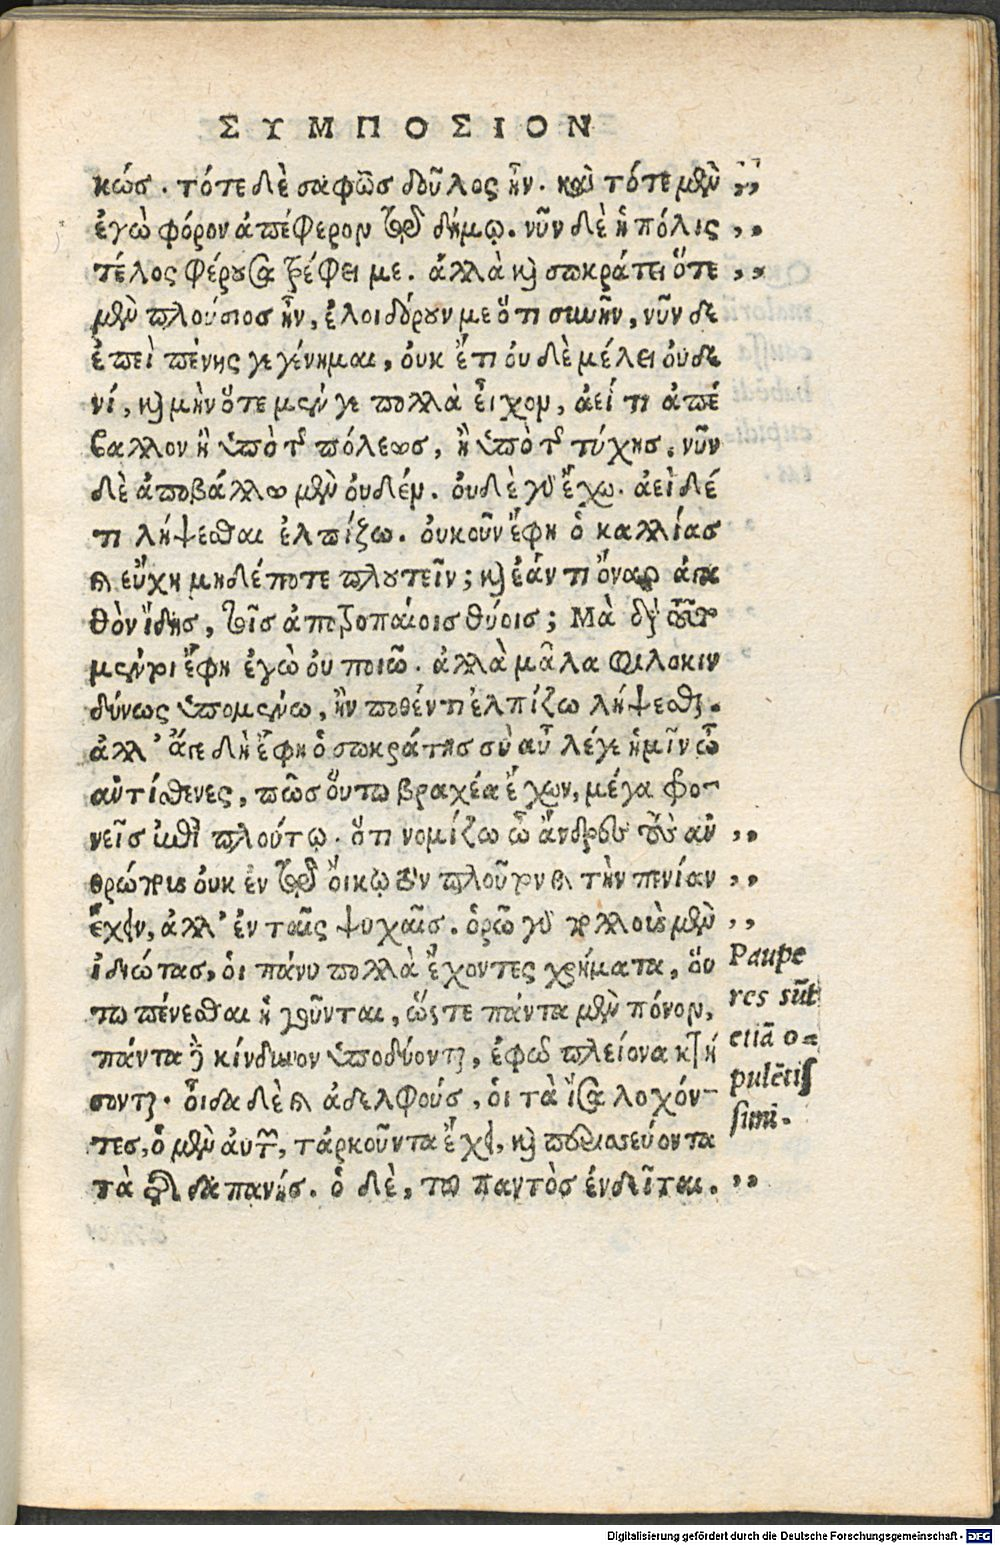 ΣΥΜΠΟΣΙΟΝ
κώσ. τότε δὲ σαφῶσ δοῦλος ἦν. καὶ τότε μὲν ,,
ἐγὼ φόρον ἀπέφερον τῷ δήμῳ. νῦν δὲ ἡ πόλις ,,
τέλος φέρουσα τρέφει με. ἀλλὰ καὶ σωκράτει ὅτε ,,
μὲν πλούσιοσ ἦν, ἐλοιδόρουν με ὅτι συνῆν, νῦν δε
ἐπεὶ πένης γεγένημαι, ὀυκ ἔτι ὀυδὲ μέλει ὀυδε
νί, καὶ μὴν ὅτε μέν γε πολλὰ εἶχον, ἀεί τι ἀπέ
βαλλον ἢ ὑπὸ τῆς πόλεωσ, ἢ ὑπὸ τῆς τύχησ. νῦν
δὲ ἀποβάλλω μὲν ὀυδέν. ὀυδὲ γὰρ ἔχω. ἀεὶ δέ
τι λήψεσθαι ἐλπίζω. ὀυκοῦν ἔφη ὁ καλλίασ
καὶ εὔχῃ μηδέποτε πλουτεῖν; καὶ ἐάν τι ὄναρ ἀγα
θὸν ἴδῃσ, τοῖσ ἀποτροπαίοισ θύεισ; Μὰ δί τοῦτο
μέντοι ἔφη ἐγὼ ὀυ ποιῶ. ἀλλὰ μάλα φιλοκιν
δύνως ὑπομένω, ἤν ποθέν τι ἐλπίζω λήψεσθαι.
ἀλλ' ἄγε δὴ ἔφη ὁ σωκράτησ σὺ αὖ λέγε ἡμῖν ὦ
ἀντίσθενες, πῶσ ὅυτω βραχέα ἔχων, μέγα φρο-
νεῖσ ἐπὶ πλούτῳ. ὅτι νομίζω ὦ ἄνδρες τοὺς ἀν ,,
θρώπους ὀυκ ἐν τῷ ὄικῳ τὸν πλοῦτον καὶ τὴν πενίαν ,,
ἔχειν, ἀλλ' ἐν ταῖς ψυχαῖσ. ὁρῶ γὰρ πολλοὺς μὲν ,,
ἰδιώτασ, ὁι πάνυ πολλὰ ἔχοντες χρήματα, ὅυ
τω πένεσθαι ἡγοῦνται, ὥςτε πάντα μὲν πόνον,
πάντα δὲ κίνδυνον ὑποδύονται, ἐφῷ πλείονα κτή
σονται. ὀῖδα δὲ καὶ ἀδελφούσ, ὁι τὰ ἴσα λαχόν-
τεσ, ὁ μὲν ἀυτῶν, τἀρκοῦντα ἔχει, καὶ περισσεύοντα
τὰ τῆς δαπανήσ. ὁ δὲ, τοῦ παντὸσ ἐνδεῖται. ,,
Paupe
res sūt
etiā o=
pulētis
simi.
Digitalisierung gefördert durch die Deutsche Forschungsgemeinschaft - DFG